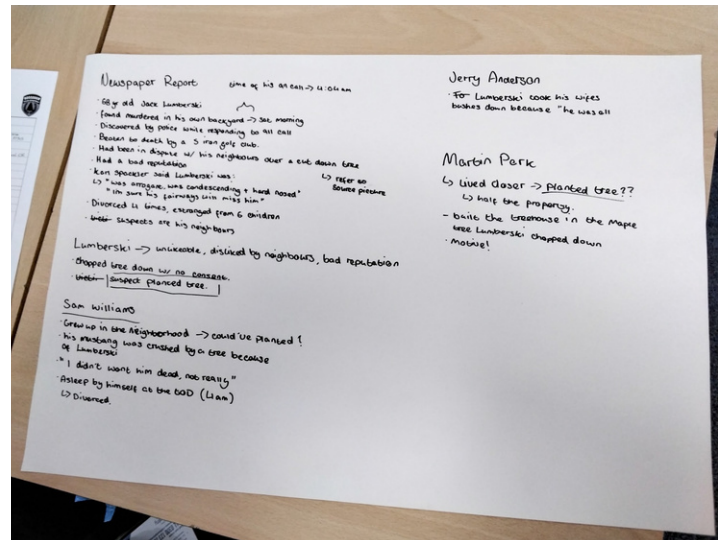 Newspaper Report
time of his 911 call → 4:04am
· 68 yr old Jack Lumberski
· found murdered in his own backyard → sat morning
· Discovered by police while responding to 911 call
· Beaten to death by a 5 iron golf club.
· Had been in dispute w/ his neighbours over a cut down tree
↳ refer to source picture
· Had a bad reputation
· Karl Spackler said Lumberski was:
↳ "was arrogant, was condescending + hard nosed"
"im sure his fairways will miss him"
· Divorced 4 times, estranged from 6 children
· suspects are his neighbours
Lumberski → unlikeable, disliked by neighbours, bad reputation
· Chopped tree down w/ no consent.
· suspect planted tree.
Sam Williams
· Grew up in the neighborhood → could've planted?
· his mustang was crushed by a tree because
of Lumberski
· "I didn't want him dead, not really"
· Asleep by himself at the TOD (4am)
↳ Divorced.
Jerry Anderson
· For Lumberski took his wifes
bushes down because "he was all
Martin Perk
↳ lived closer → planted tree??
↳ half the property.
- built the treehouse in the maple
tree Lumberski chopped down
· Motive!